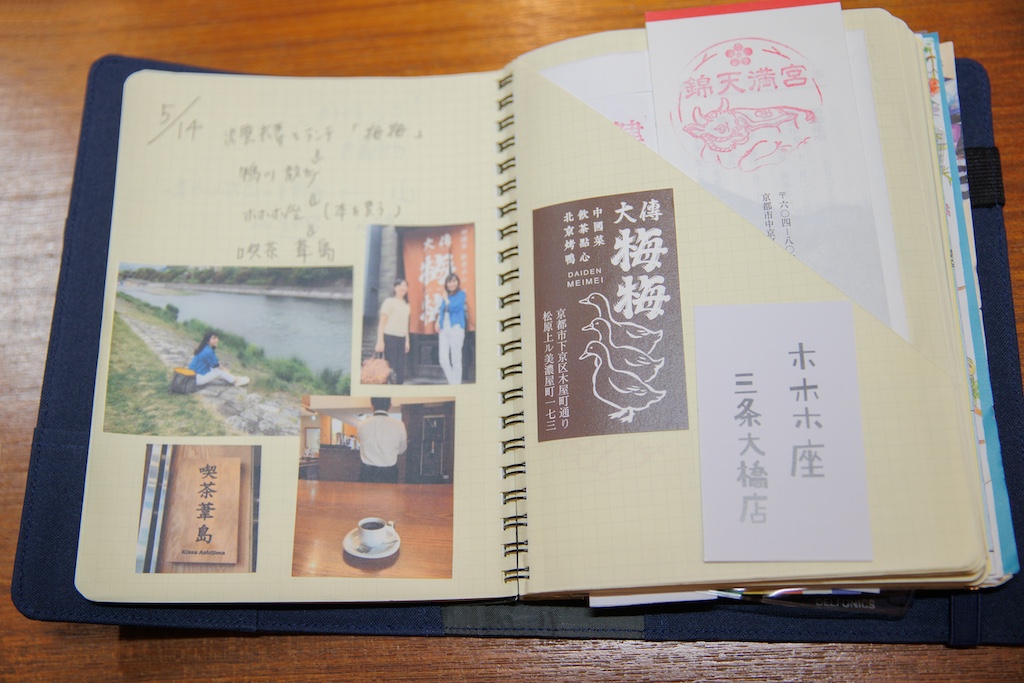 5/14
「梅梅」
鴨川散歩
&
ホホホ座 (本を買う)
&
喫茶 葦島
大傳
梅梅
喫茶葦島
Kissa Ashijima
錦天満宮
〒六〇四−八〇
京都市中京区
大傳
梅梅
中國菜
飲茶點心
北京烤鴨
DAIDEN
MEIMEI
京都市下京区木屋町通り
松原上ル美濃屋町一七三
ホホホ座
三条大橋店
DELFONICS